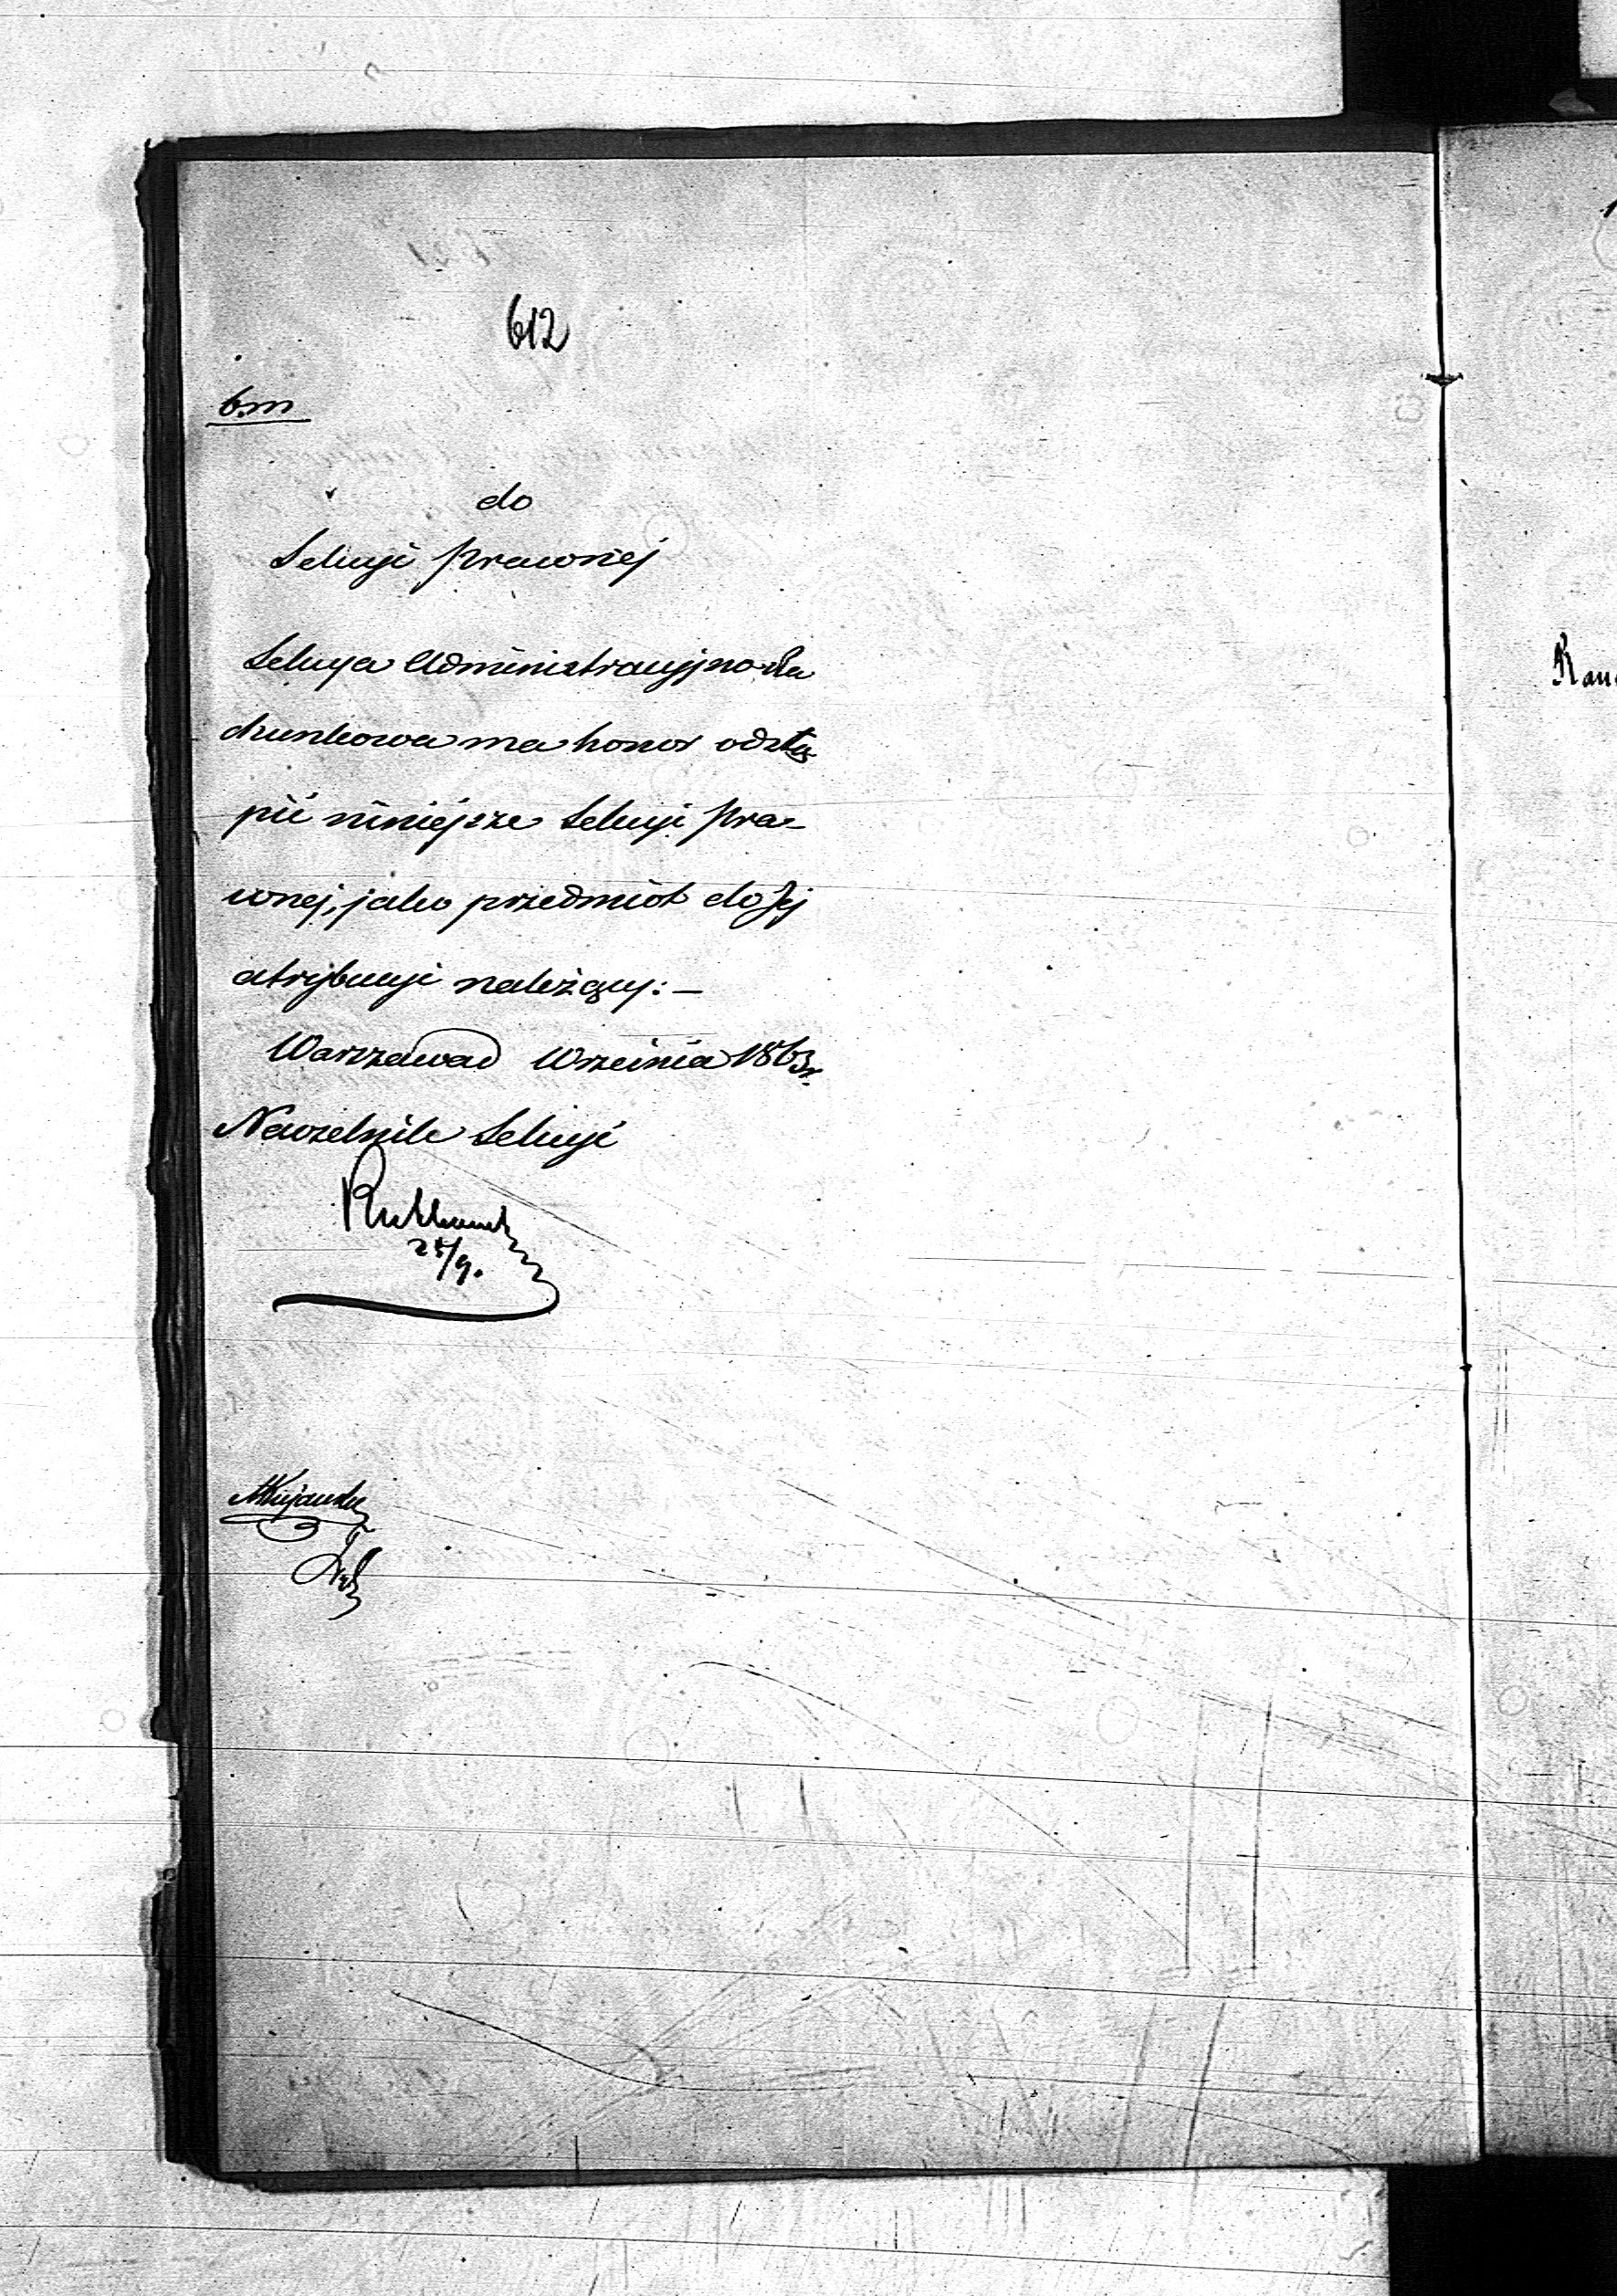 612
b.m
do
Sekcyi Prawnej
Sekcya Administracyjno-Ra
chunkowa ma honor odstą
pić niniejsze Sekcyi Pra-
wnej, jako przedmiot do Jej
atrybucyi należący: –
Warszawa d Września 1863 r.
Naczelnik Sekcyi
25/9.